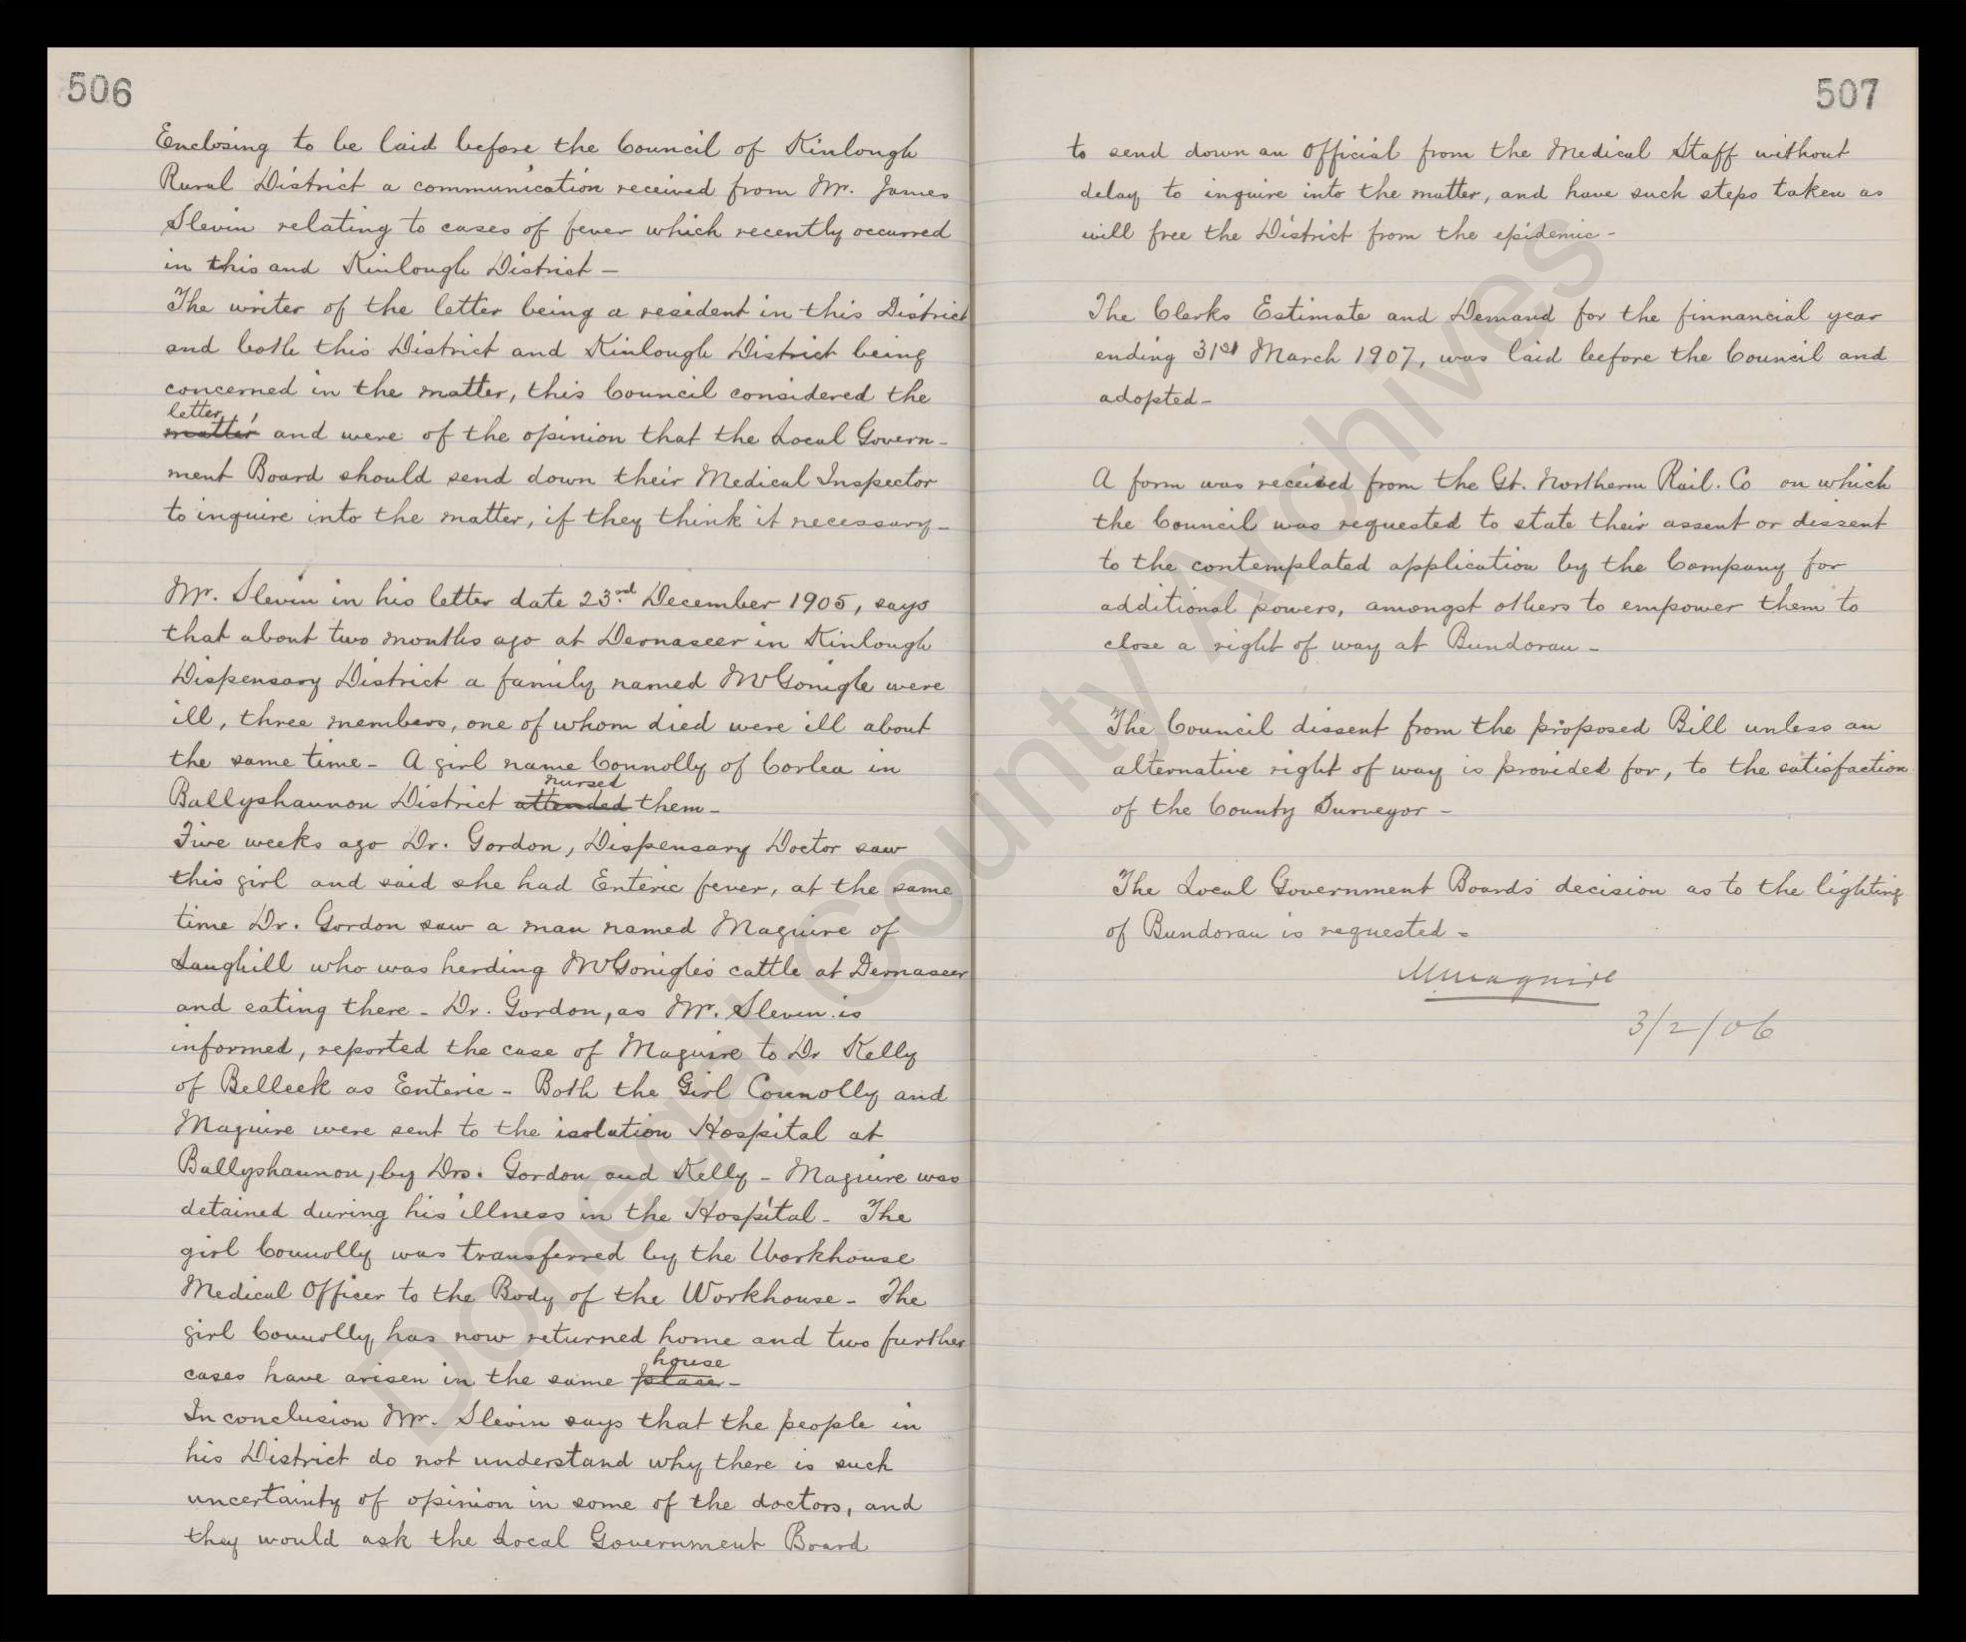 506
Enclosing to be laid before the Council of Kinlough
Rural District a communication received from Mr. James
Slevin relating to cases of fever which recently occurred
in this and Kinlough District –
The writer of the letter being a resident in this District
and both this District and Kinlough District being
concerned in the matter, this Council considered the
letter,
matter and were of the opinion that the Local Govern-
ment Board should send down their Medical Inspector
to inquire into the matter, if they think it necessary –
Mr. Slevin in his letter date 23rd December 1905, says
that about two months ago at Dernaseer in Kinlough
Dispensary District a family named McGonigle were
ill, three members, one of whom died were ill about
the same time – A girl name Connolly of Corlea in
nursed
Ballyshannon District attended them –
Five weeks ago Dr. Gordon, Dispensary Doctor saw
this girl and said she had Enteric fever, at the same
time Dr. Gordon saw a man named Maguire of
Laughill who was herding McGonigles cattle at Dernaseer
and eating there – Dr. Gordon, as Mr. Slevin is
informed, reported the case of Maguire to Dr Kelly
of Belleek as Enteric – Both the Girl Connolly and
Maguire were sent to the isolation Hospital at
Ballyshannon, by Drs. Gordon and Kelly – Maguire was
detained during his illness in the Hospital – The
girl Connolly was transferred by the Workhouse
Medical Officer to the Body of the Workhouse – The
girl Connolly has now returned home and two further
house
cases have arisen in the same place –
In conclusion Mr. Slevin says that the people in
his District do not understand why there is such
uncertainty of opinion in some of the doctors, and
they would ask the Local Government Board
507
to send down an Official from the Medical Staff without
delay to inquire into the matter, and have such steps taken as
will free the District from the epidemic –
The Clerks Estimate and Demand for the finnancial year
ending 31st March 1907, was laid before the Council and
adopted –
A form was received from the Gt. Northern Rail. Co on which
the Council was requested to state their assent or dissent
to the contemplated application by the Company for
additional powers, amongst others to empower them to
close a right of way at Bundoran –
The Council dissent from the proposed Bill unless an
alternative right of way is provided for, to the satisfaction
of the County Surveyor –
The Local Government Boards decision as to the lighting
of Bundoran is requested –
MMaguire
3/2/06
Donegal County Archives